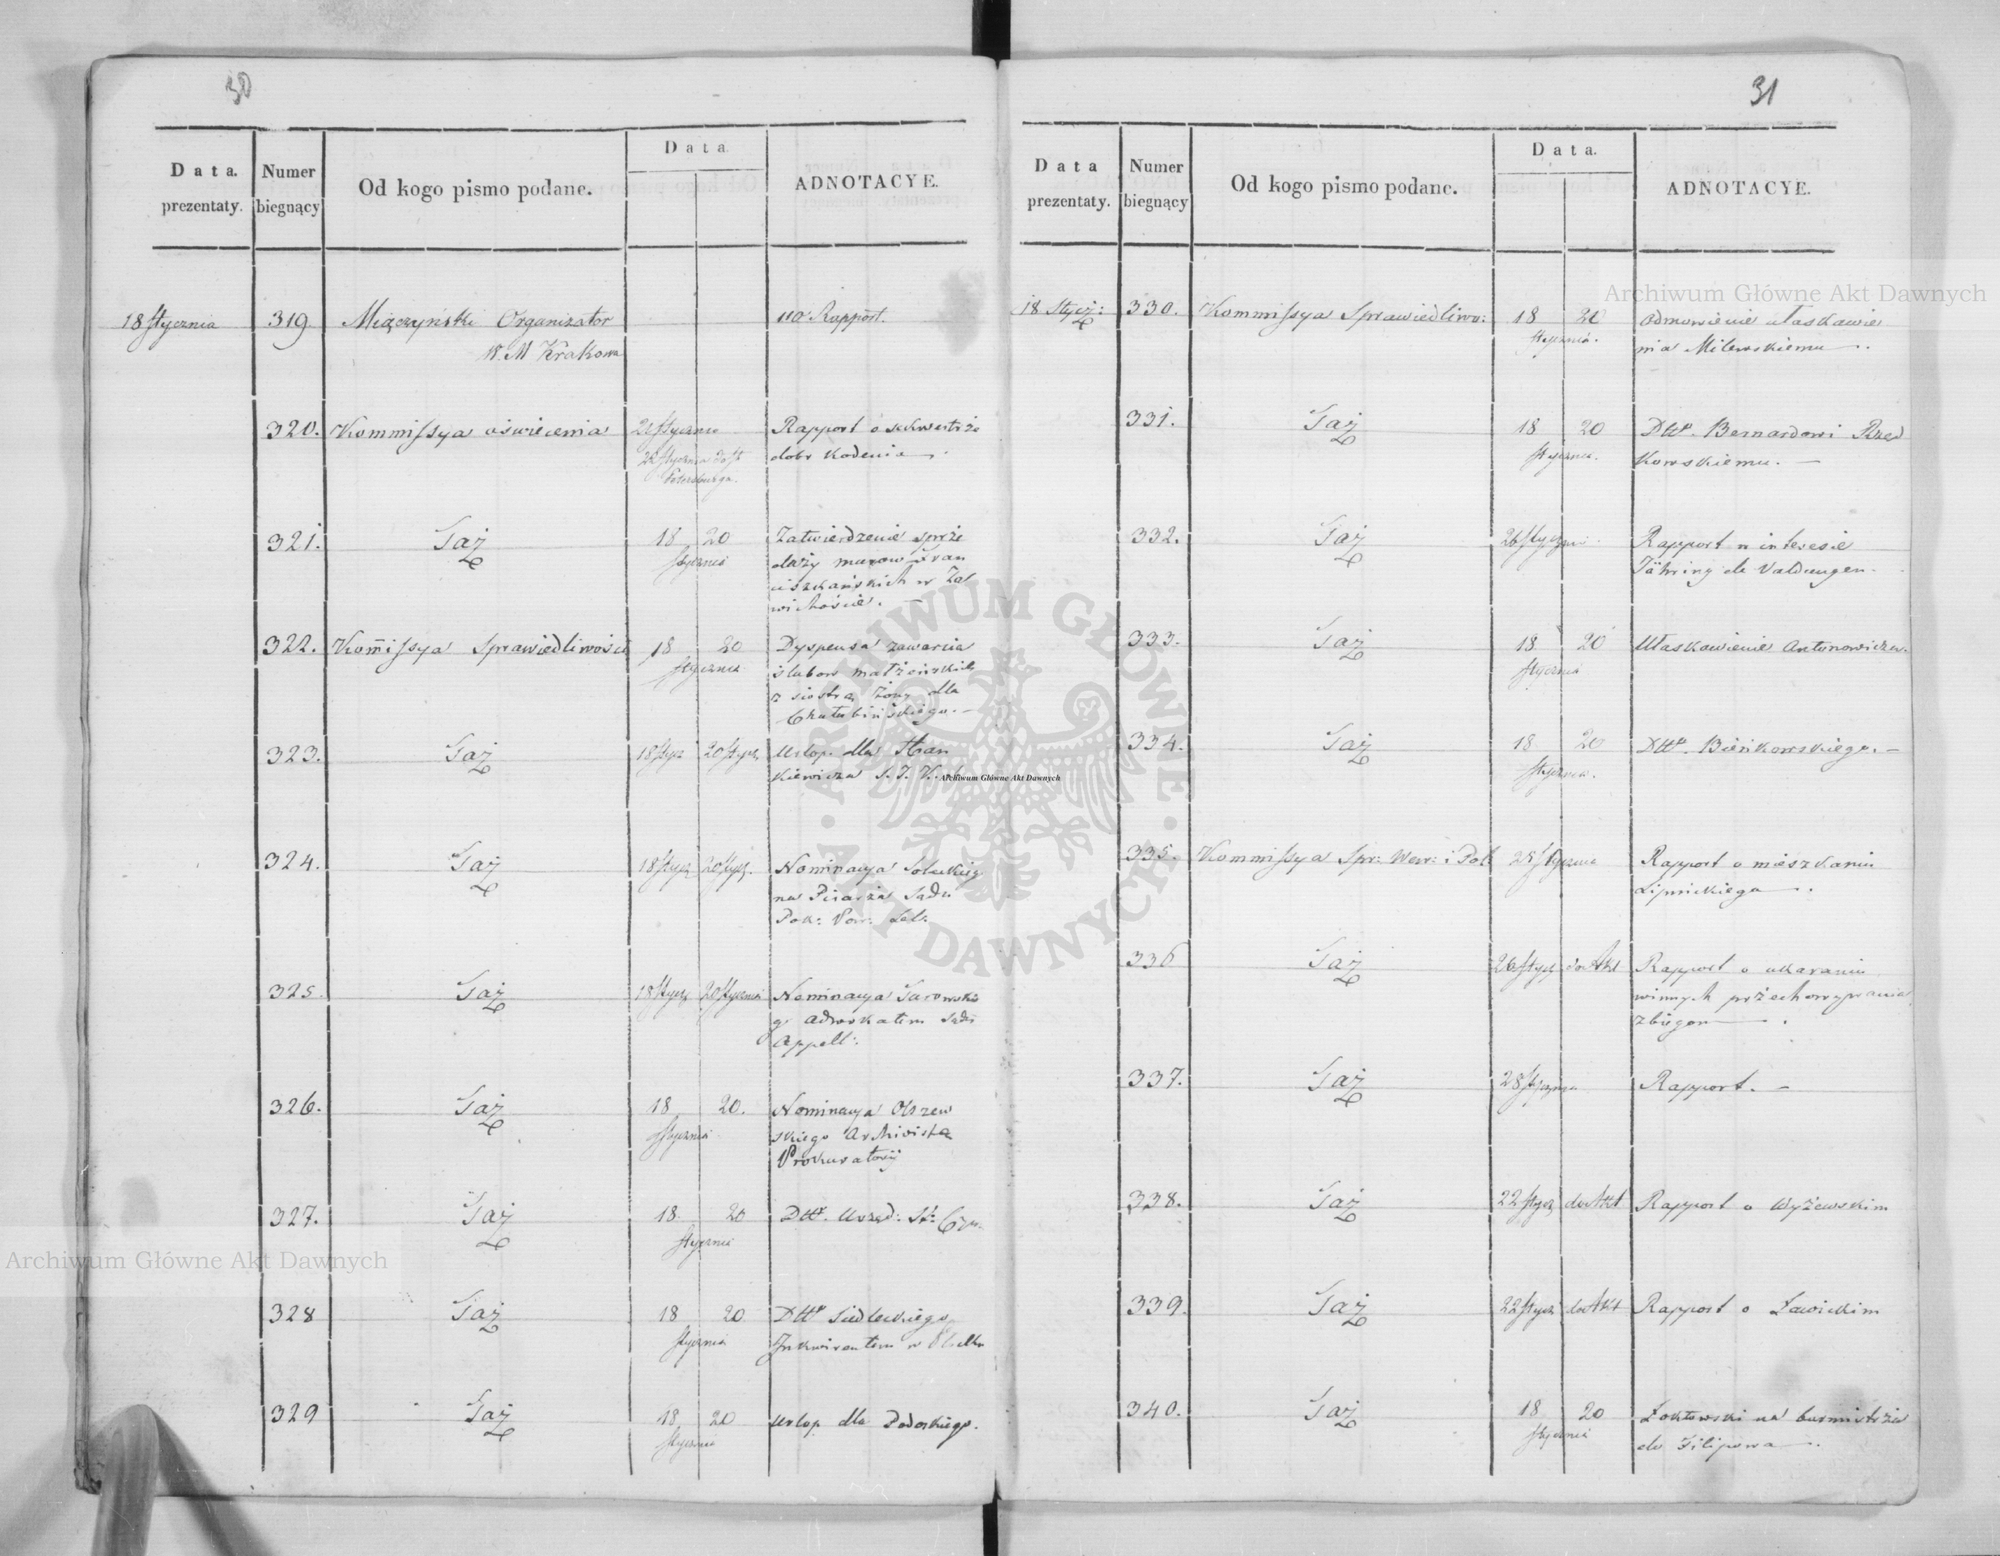 30
Data. prezentaty.
Numer biegnący
Od kogo pismo podane.
Data.
ADNOTACYE.
18 Stycznia 319 Mięczyński Organizator 110 Rapport.
W. M Krakowa
320. Kommissya oświecenia 21 Stycznia Rapport o sekwestrze
28 Stycznia do St dobr Kodenia.
Petersburga.
321. Taż 18 20 Zatwierdzenie sprze
Stycznia daży murow Fran
ciszkańskich w Za
wichoście.
322. Kom̄issya Sprawiedliwości 18 20 Dyspensa zawarcia
Stycznia ślubow małżeńskich
z siostrą Żony dla
Chałubińskiego.–
323. Taż 18 Stycz 20 Stycz. Urlop. dla Stan
kiewicza S. I. K.
324. Taż 18 Stycz 20 Stycz. Nominacya Soleckieg
na Pisarza Sądu
Pok: Pow: Lel.
325. Taż 18 Stycz 20 Stycznia Nominacya Tarowskie
go adwokatem Sądu
Appell:
326. Taż 18 20. Nominacya Olszew
Stycznia skiego Archivista
Prokuratoryi
327. Taż 18. 20 Dtto. Urzęd: St: Cyw.
Stycznia
328 Taż 18 20 Dtto Siedleckiego
Stycznia Inkwirentem w Płocku
329 Taż 18 20 Urlop dla Podoskiego.
Stycznia
31
Data prezentaty.
Numer biegnący
Od kogo pismo podane.
Data.
ADNOTACYE.
18 Stycz: 330. Kommissya Sprawiedliwo: 18 20 Odmowienie ułaskawie
Stycznia. nia Milewskiemu.
331. Taż 18 20 Dtto. Bernardowi Rzed
Stycznia. kowskiemu.–
332. Taż 26 Stycznia Rapport w interesie
Tähring de Valdungen.
333. Taż 18 20 Ułaskawienie Antunowicza.
Stycznia
334. Taż 18 20 Dtto. Bieńkowskiego.–
Stycznia.
335. Kommissya Spr: Wew: i Pol. 25 Stycznia Rapport o mieszkaniu
Lipnickiego.
336 Taż 26 Stycz do Akt Rapport o ukaraniu
winnych przechowywania
zbiegow.
337. Taż 28 Stycznia Rapport.–
338. Taż 22 Stycz do Akt Rapport o Wyżewskim
339. Taż 22 Stycz do Akt Rapport o Zawickim
340. Taż 18 20 Zoktowski na burmistrza
Stycznia do Filipowa.
Archiwum Główne Akt Dawnych
Archiwum Główne Akt Dawnych
Archiwum Główne Akt Dawnych
ARCHIWUM GŁÓWNE · AKT DAWNYCH ·